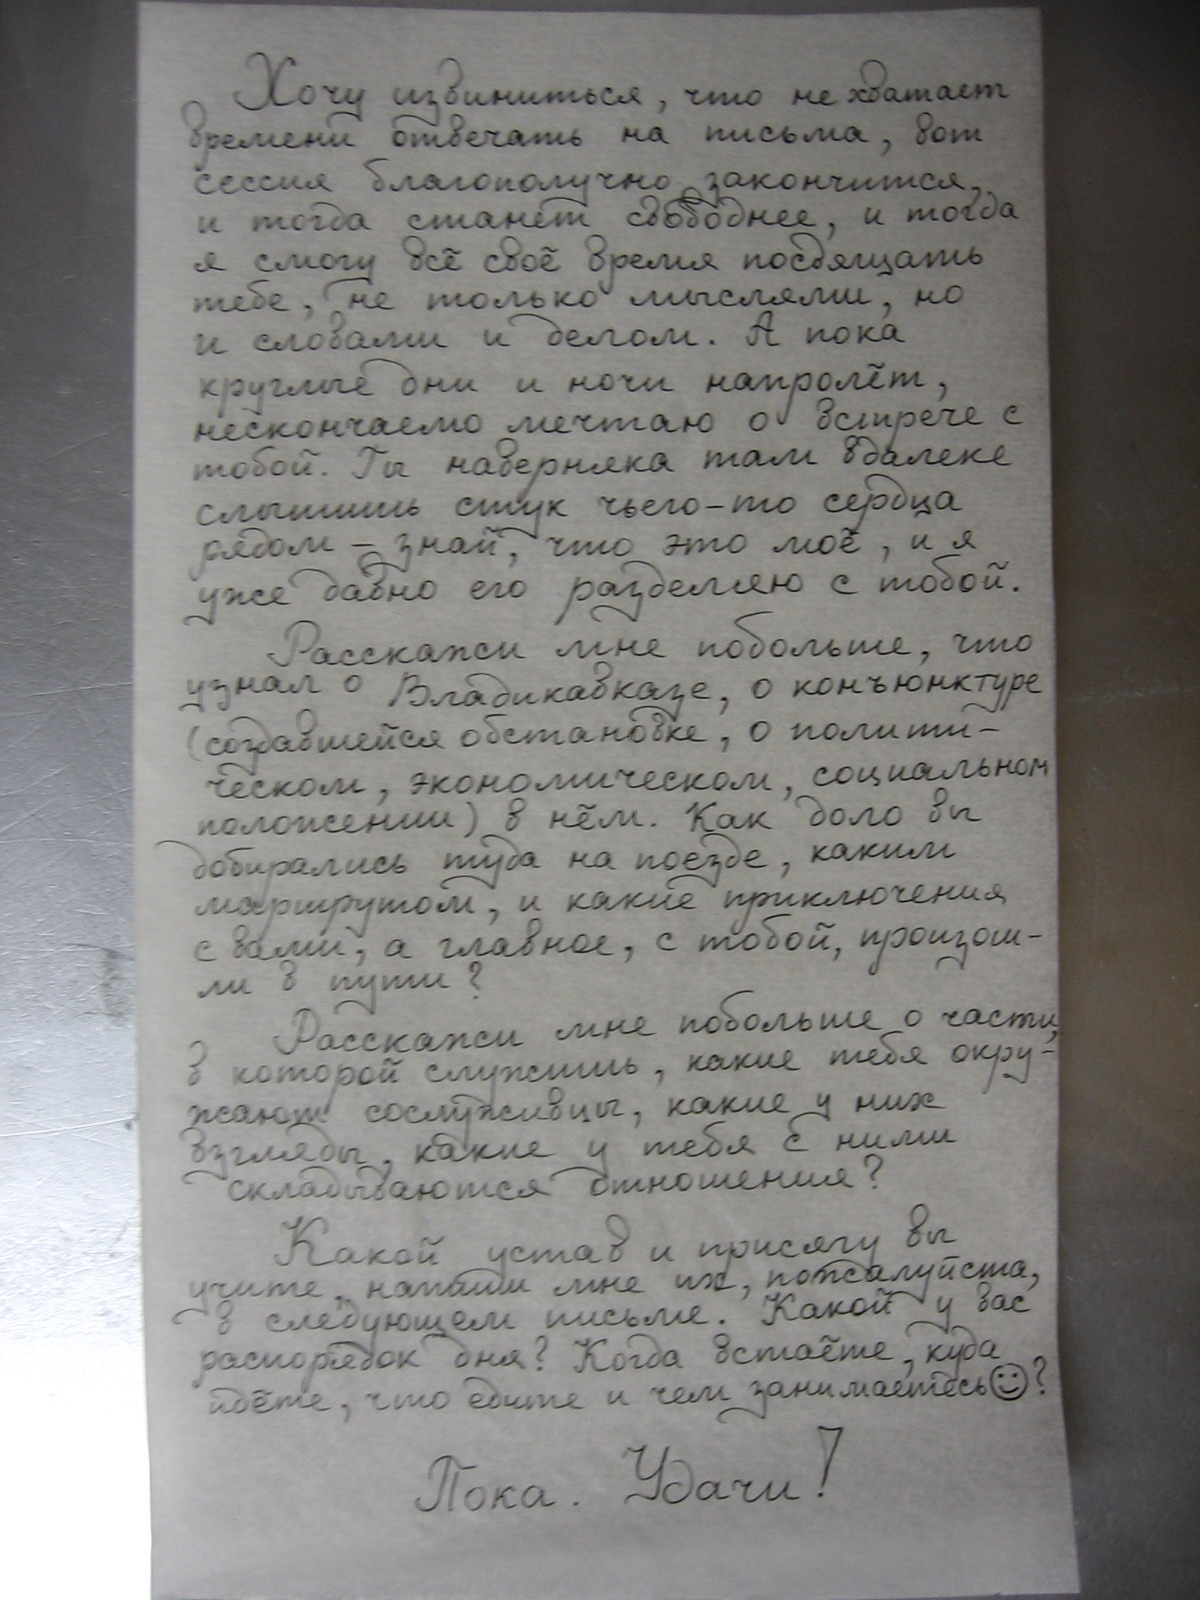 Хочу извиниться, что не хватает
времени отвечать на письма, вот
сессия благополучно закончится,
и тогда станет свободнее, и тогда
я смогу всё своё время посвящать
тебе, не только мыслями, но
и словами и делом. А пока
круглые дни и ночи напролёт,
нескончаемо мечтаю о встрече с
тобой. Ты наверняка там вдалеке
слышишь стук чьего-то сердца
рядом – знай, что это моё, и я
уже давно его разделяю с тобой.
Расскажи мне побольше, что
узнал о Владикавказе, о конъюнктуре
(создавшейся обстановке, о полити-
ческом, экономическом, социальном
положении) в нём. Как долго вы
добирались туда на поезде, каким
маршрутом, и какие приключения
с вами, а главное, с тобой, произош-
ли в пути?
Расскажи мне побольше о части,
в которой служишь, какие тебя окру-
жают сослуживцы, какие у них
взгляды, какие у тебя с ними
складываются отношения?
Какой устав и присягу вы
учите, напиши мне их, пожалуйста,
в следующем письме. Какой у вас
распорядок дня? Когда встаёте, куда
идёте, что едите и чем занимаетесь☺?
Пока. Удачи!